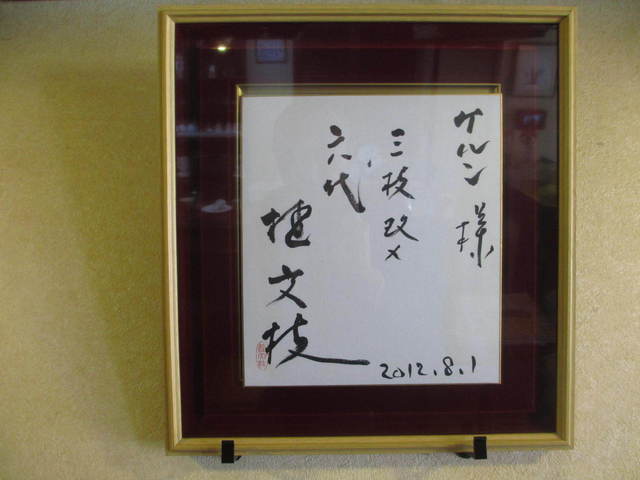 ケルン様
三枝改メ
六代
桂文枝
2012.8.1